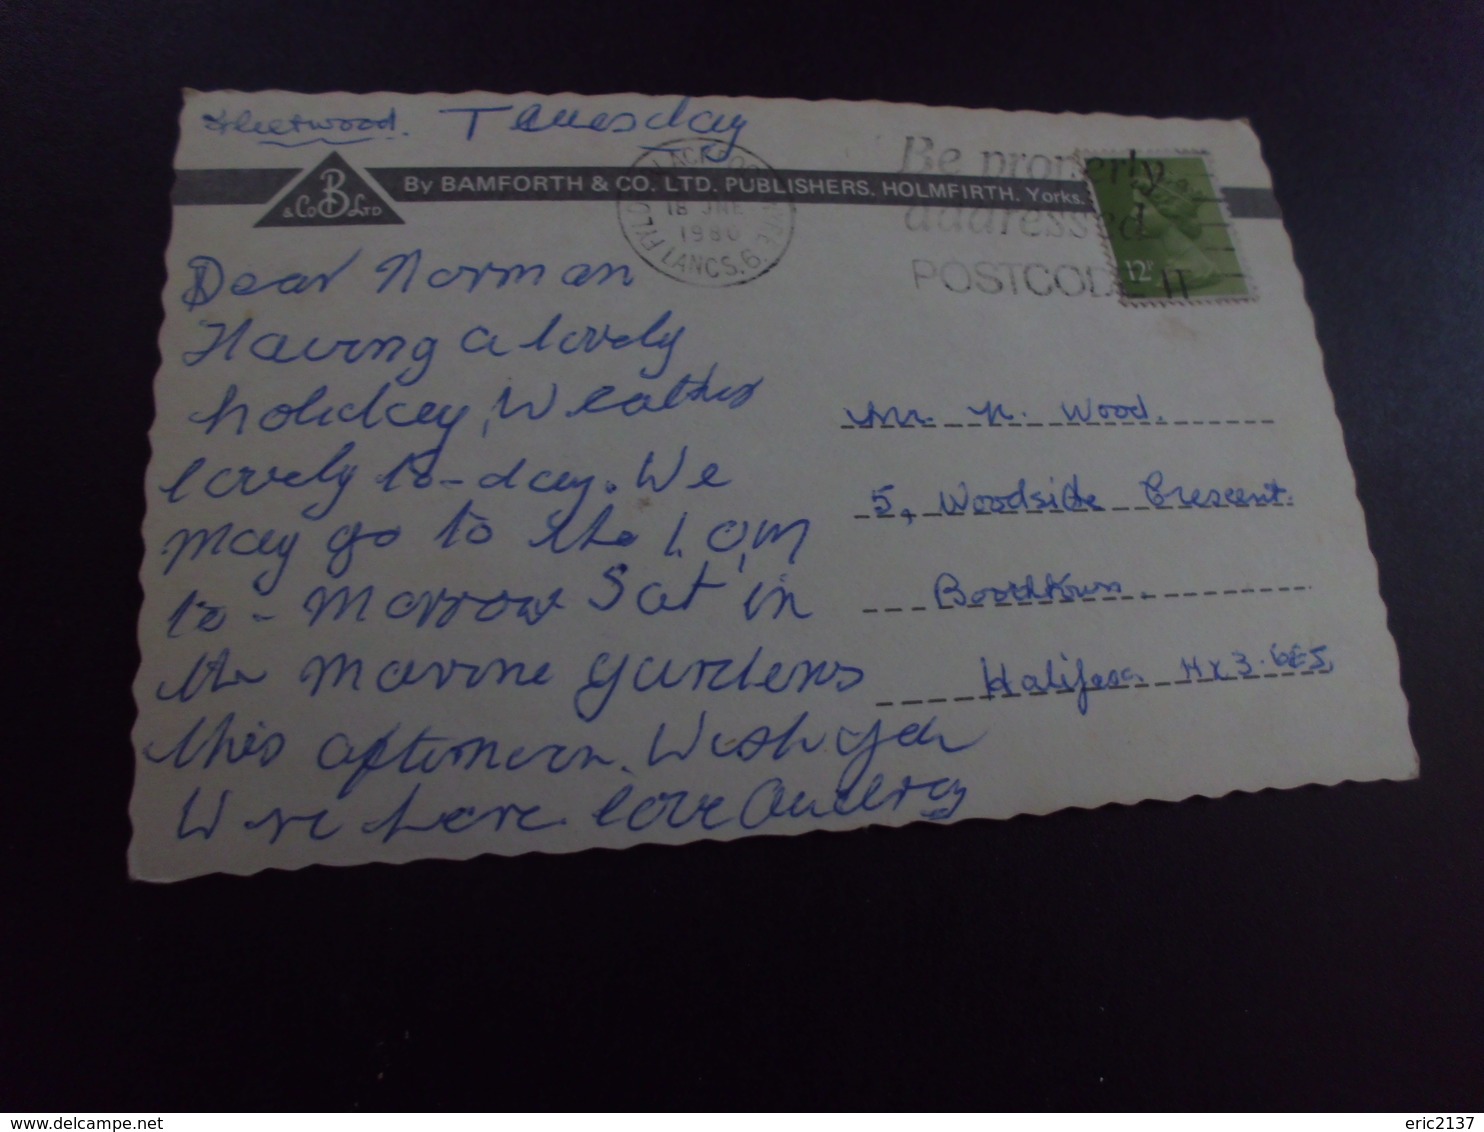 Fleetwood. Tuesday
& Co B Ltd
By BAMFORTH & CO. LTD. PUBLISHERS. HOLMFIRTH. Yorks.
BLACKPOOL FYLDE
18 JNE
1980
LANCS. 6.
Be properly
addressed
POSTCODE IT
12P
Dear Norman
Having a lovely
holiday, Weather
lovely to-day. We
may go to the I.O,M
to-morrow Sat in
the marine gardens
this afternoon. Wish you
Were here love Audrey
Mr. N. Wood.
5, Woodside Crescent.
Boothtown,
Halifax HX3.6EJ,
eric2137
delcampe.net